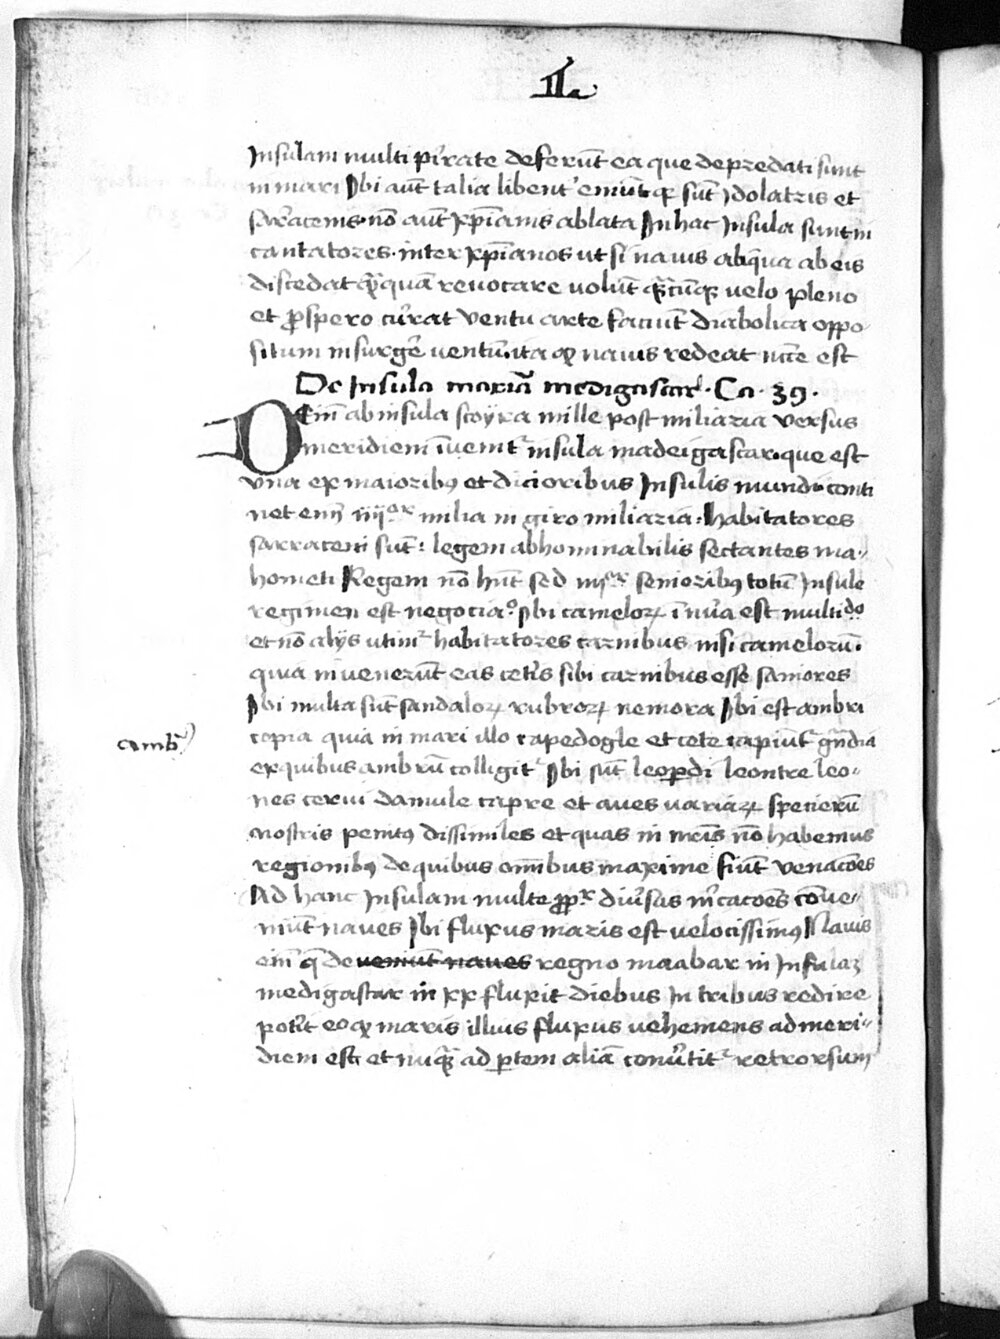 II
Insulam multi pirate deferūt ea que depredati sunt
in mari Ibi aūt talia libent᾽ emūt qꝫ sūt ydolatris et
sarracenis nō aūt xp̄ianis ablata In hac Insula sunt in
cantatores inter xp̄ianos ut si nauis aliqua ab eis
discedat velo pleno
et ꝓspero currat ventu arte faciūt diabolica oppo
situm insurgē ventum ita ꝙ nauis redeat est
De Insula medigascar. Ca. 39.
Dein̄ ab insula scoyra mille post miliaria versus
meridiem īuenitᷣ insula madeigascar. que est
vna ex maioribꝰ et dicioribus Insulis mundi conti
net eni᷑ iiijᵒʳ milia in giro miliaria. Habitatores
sarraceni sūt: legem abhominabilis sectantes ma-
hometi Regem nō hn̄t sed iiijᵒʳ senioribꝰ totū Insule
regimen est Ibi cameloꝝ est multido
et nō alijs utunᷣ habitatores carnibus nisi camelorū.
quia invenerūt eas ceteris sibi carnibus esse saniores
Ibi multa sūt sandaloꝝ rubroꝝ nemora Ibi est ambri
copia quia in mari illo capedogle et cete capiunt᷑ grādia
ambr᷑
ex quibus ambrū colligitᷣ Ibi sūt leopardi leontie leo-
nes cerui damule capre et aues variaꝝ specierū
nostris penitꝰ dissimiles et quas in nr̄is nō habemus
regionibꝰ de quibus om̄ibus maxime fiūt venacōes
Ad hanc Insulam multe ꝓpᵗʳ diūsas mᵉcacōes cōue-
niūt naues Ibi fluxus maris est velocissimꝰ Nauis
ein̄ q̄ de veniūt naues regno maabar in Insulaꝫ
medigascar in xx fluxit diebus In tribus redire
potᷣit eo ꝙ maris illius fluxus vehemens ad meri-
diem est et nūqᷓ ad ꝑtem aliā conūtitᷣ retrorsum